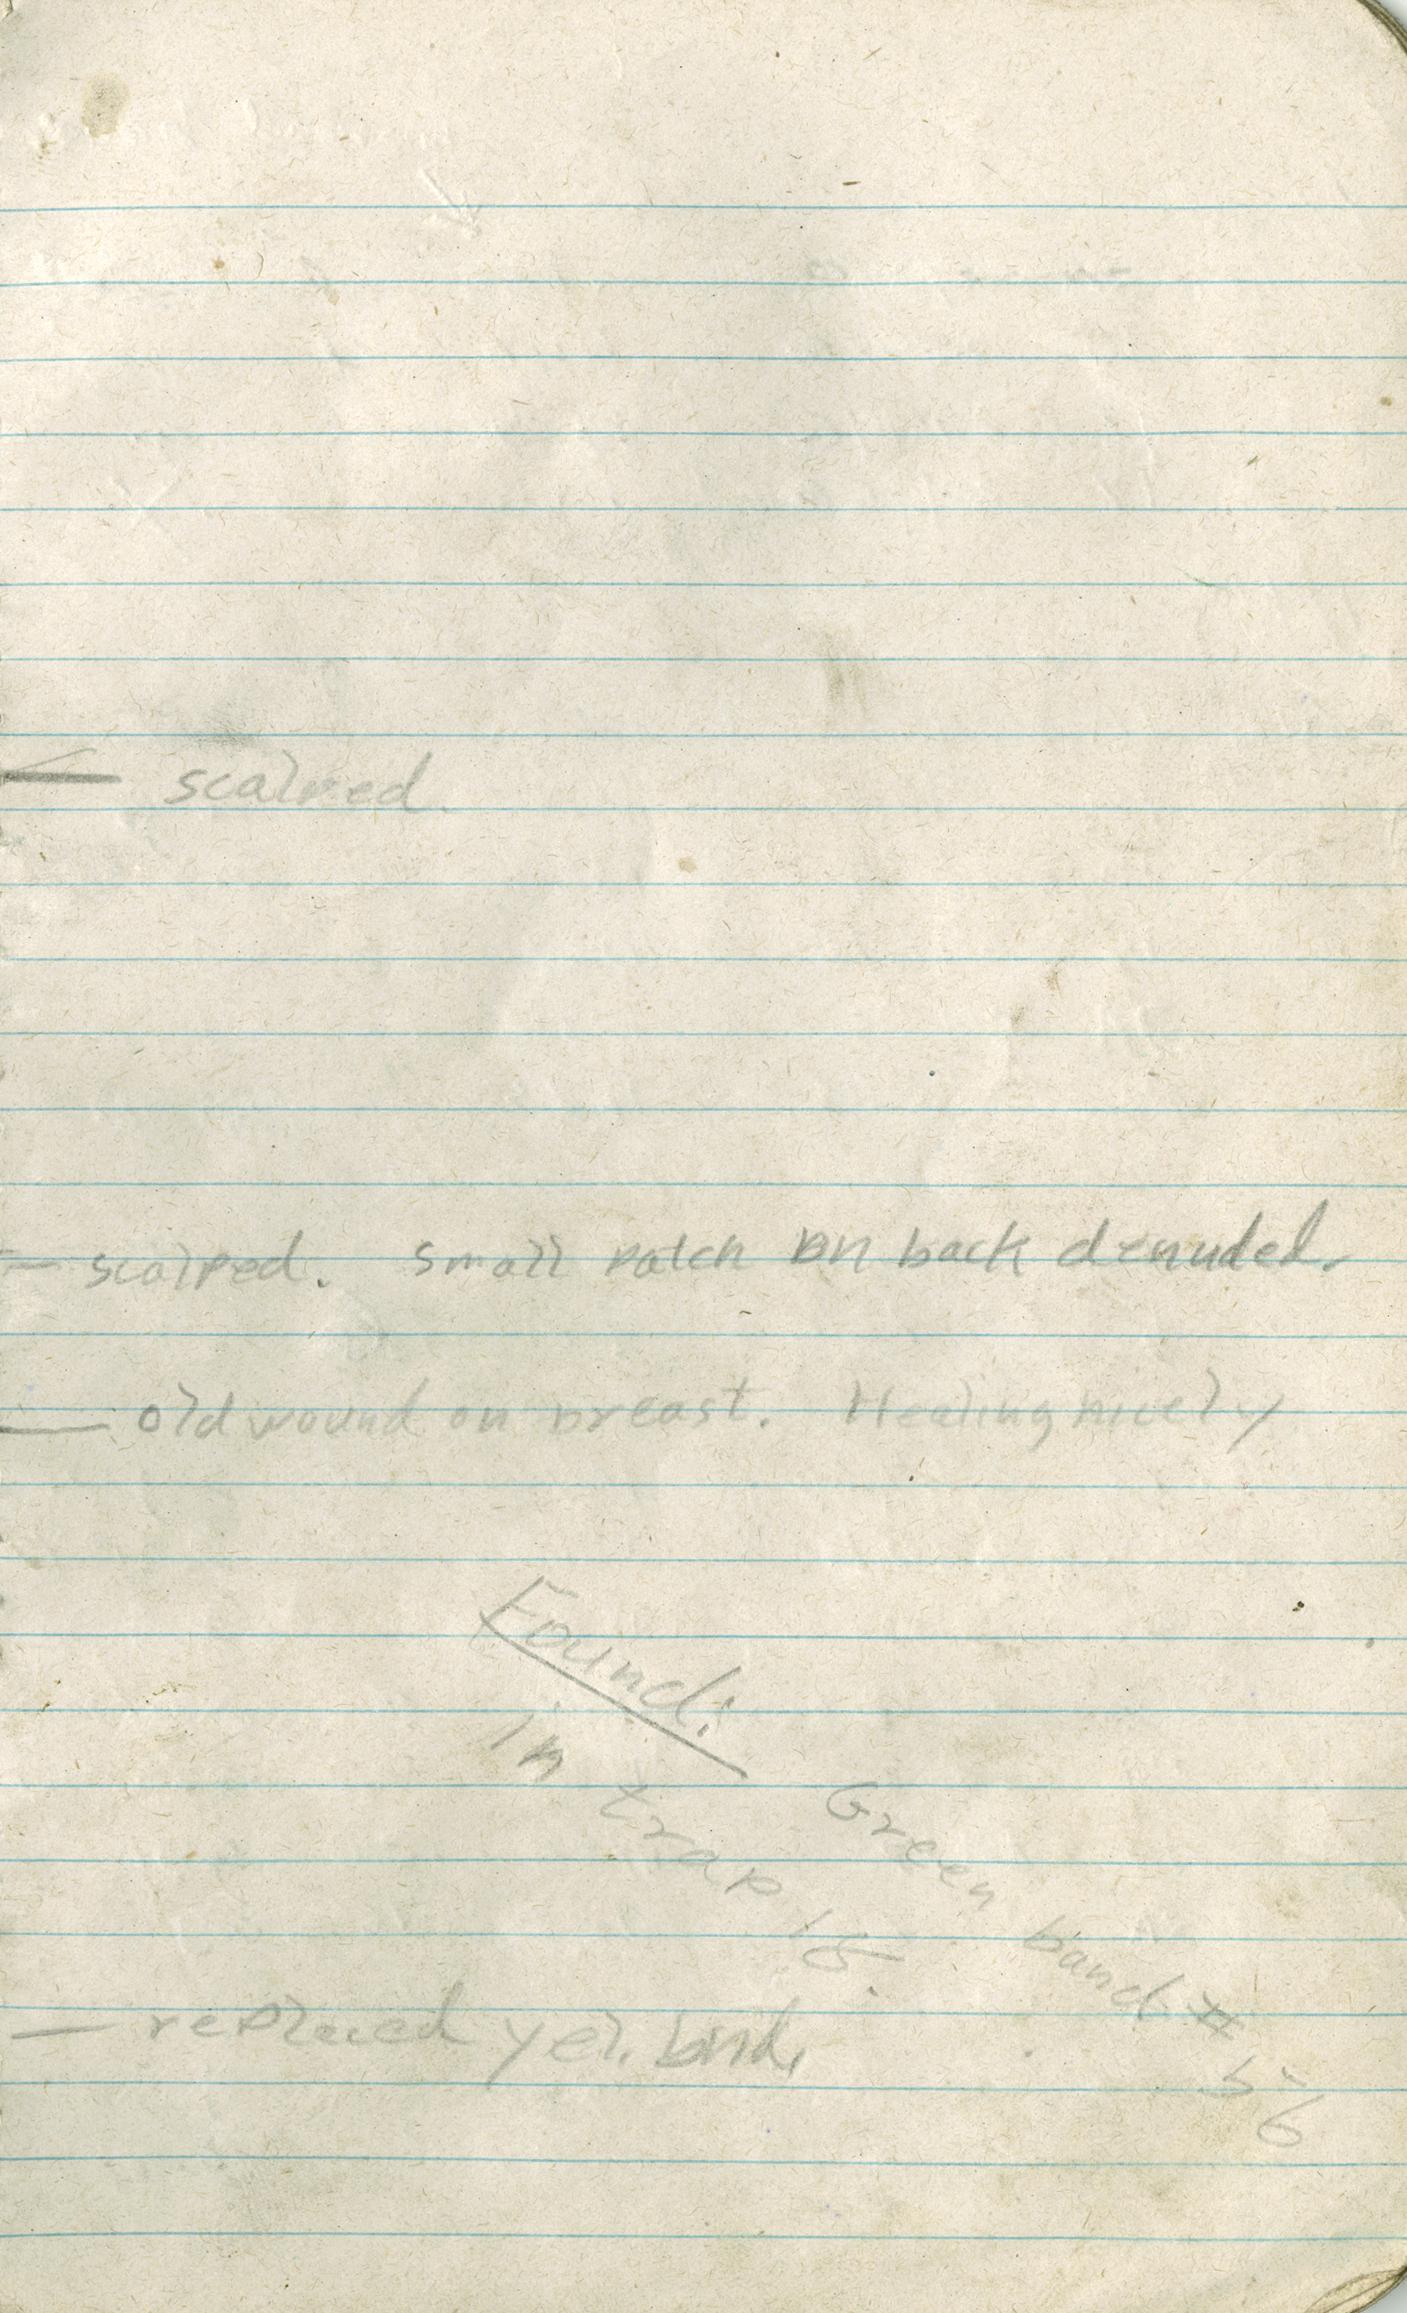 ← scalped.
— scalped. Small patch on back denuded.
— old wound on breast. Healing nicely
Found:
in trap 15.
Green band # 56
— replaced yel. band.